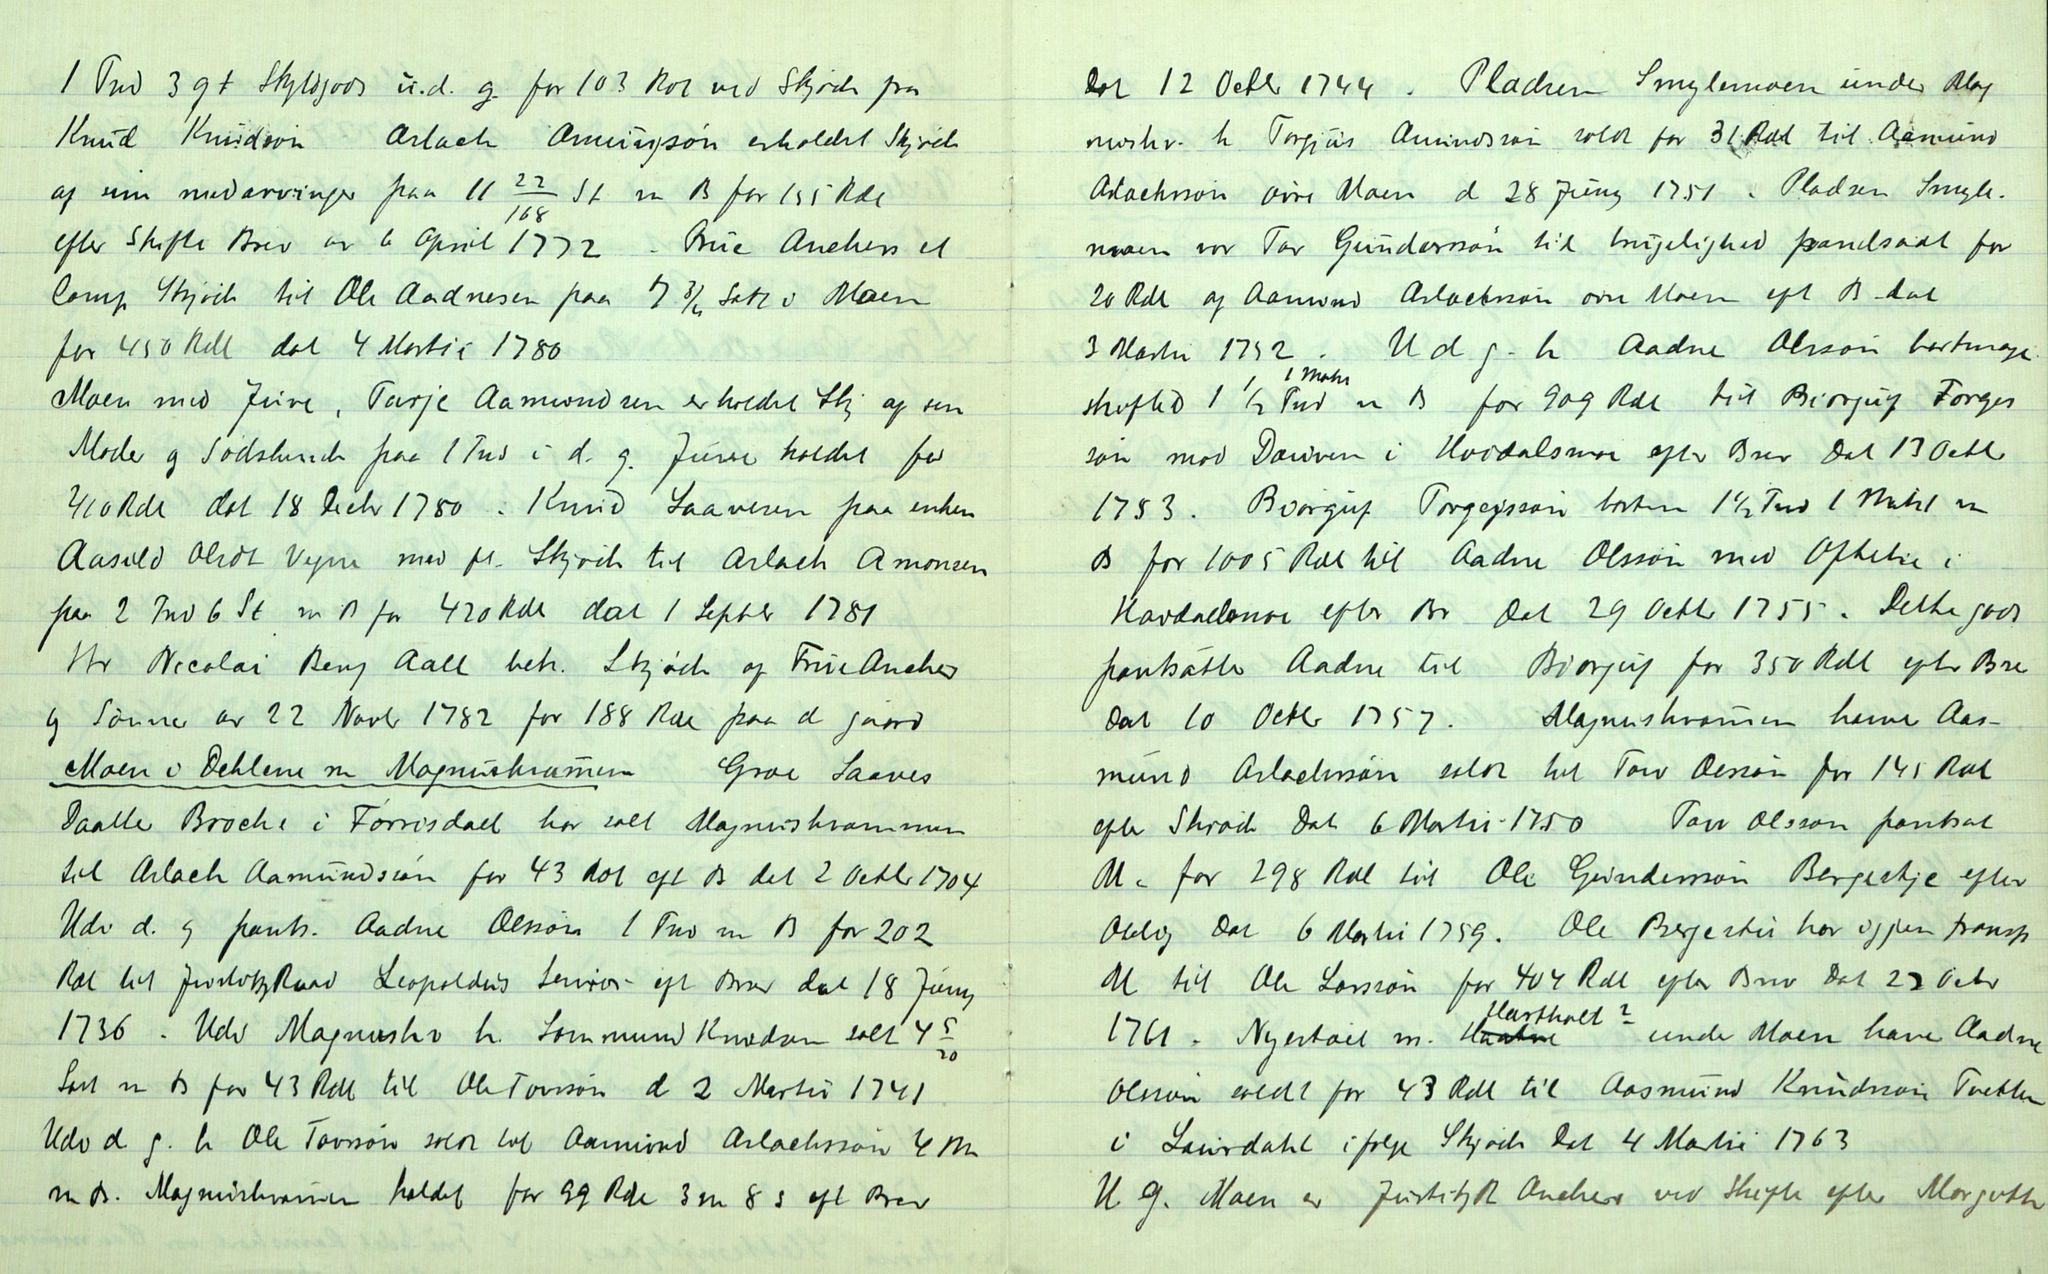 1 Tnd 3 gt Skyldgods u.d. g. for 103 Rdl ved Skjøde fra
Knud Knudsøn Aslach Amungsøn erholdet Skjøde
af sin medarvinger paa 11 22/168 St m B for 155 Rdl
efter Skifte Brev av 6 April 1772 - Frue Anchers et
Comp Skjøde til Ole Aadnesen paa 7 3/4 Sætt i Moen
for 450 Rdl dat 4 Martii 1780
Moen med Juve, Tarje Aamundsen erholdet Skj af sin
Moder g Sødskende paa 1 Tnd i d. g. Juve kaldet for
410 Rdl dat 18 Decbr 1780 - Knud Saavesen paa enken
Aasild Olsdt Vegne med fl. Skjøde til Aslach Amonsen
paa 2 Tnd 6 St m B for 420 Rdl dat 1 Septbr 1781
Hr Nicolai Benj Aall bek. Skjøde af Frue Ancher
g Sønner av 22 Novbr 1782 for 188 Rdl paa d gaard
Moen i Dehlene m Magnuskvammen Groe Saaves
Daatter Brocke i Førrisdall har solt Magnuskvammen
til Aslach Aamundssøn for 43 Rdl eft B dat 2 Octbr 1704
Udi d. g pants. Aadne Olssøn 1 Tnd m B for 202
Rdl til Justitz Raad Leopoldus Senior eft Brev dat 18 Juny
1736 - Udi Magnuskv h. Sommund Knudsen solt 4 5/20
Sæt m B for 43 Rdl til Ole Tovssøn d 2 Martii 1741
Udi d g. h Ole Tovssøn soldt til Aamund Aslachssøn 4 Mk
m B. Magnuskvamen kaldet for 99 Rdl 3 m 8 s eft Brev
Dat 12 Octbr 1744. Pladsen Smylemoen under Mag
nuskv. h Torgius Amundssøn soldt for 31 Rdl til Aamund
Aslachssøn øvre Moen d 28 Juny 1751. Pladsen Smyle-
moen vor Tor Gundersøn til brugelighed pandsadt for
20 Rdl af Aamund Aslachssøn øvre Moen eft B dat
3 Martii 1752. U d g. h Aadne Olssøn bortmage
skifted 1 1/2 Tnd 1 Mæhl m B for 909 Rdl til Biørguf Torges
søn mod Dalven i Hvidesmoe efter Brev Dat 13 Octbr
1753. Biørguf Torgejssøn bortm 1 1/2 Tnd 1 Mæhl m
B for 1005 Rdl til Aadne Olssøn mod Oftelie i
efter Br Dat 29 Octbr 1755. Dette gods
pantsatte Aadne til Biørguf for 350 Rdl efter Brev
Dat 10 Octbr 1757. Magnuskvammen have Aas-
mund Aslachssøn soldt til Tov Olssøn for 145 Rdl
efter Skiøde Dat 6 Martii 1750 Tov Olssøn pantsat
M. for 298 Rdl til Ole Gunderssøn Bergestje efter
Oblig Dat 6 Martii 1759. Ole Bergestie har igjen transp
M til Ole Larssøn for 404 Rdl efter Brev Dat 22 Octbr
1761. Nyestøel m. Hartholt? under Moen have Aadne
Olssøn soldt for 43 Rdl til Aasmund Knudssøn Tveitten
i Laurdahl ifølge Skjøde Dat 4 Martii 1763
U g. Moen er Justitz R Ancher ved Skifte efter Morgutte